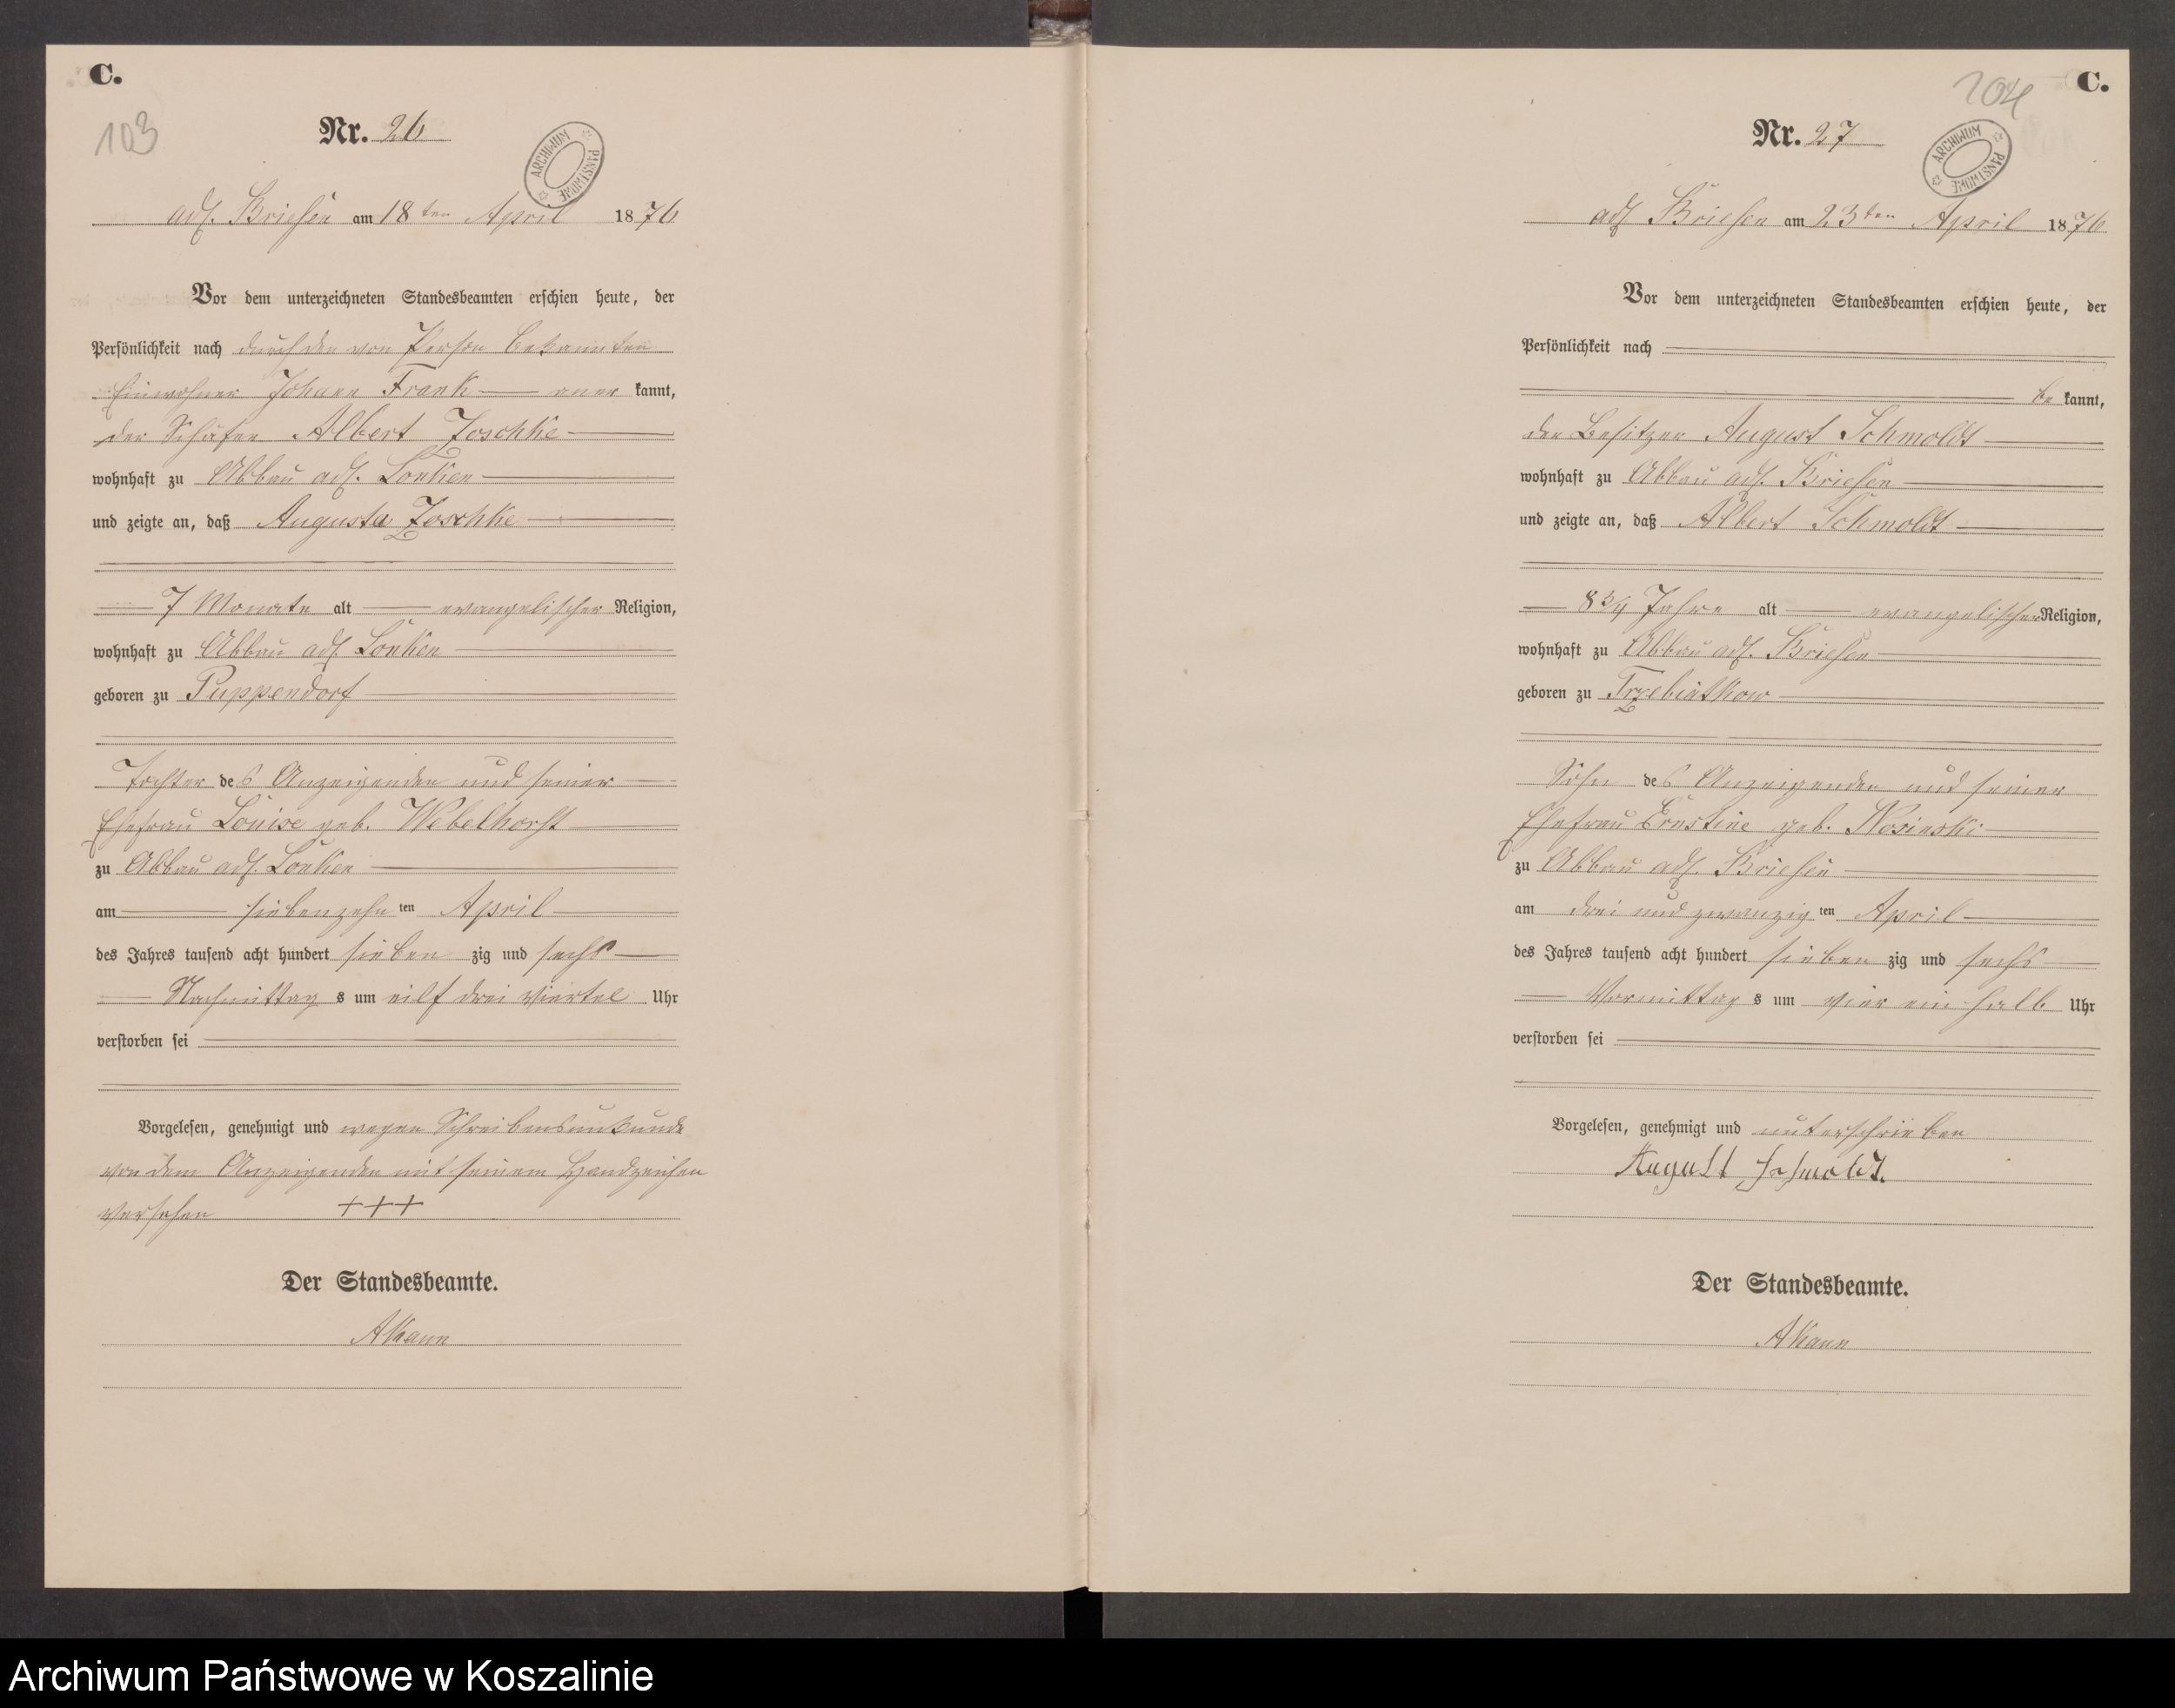 C.
103
Nr. 26
ARCHIWUM PAŃSTWOWE
adl. Briesen am 18ten April 1876
Vor dem unterzeichneten Standesbeamten erschien heute, der
Persönlichkeit nach durch den von Person bekannten
Einwohner Johann Frank aner kannt,
der Schäfer Albert Zoschke
wohnhaft zu Abbau adl. Lonken
und zeigte an, daß Auguste Zoschke
7 Monate alt evangelischer Religion,
wohnhaft zu Abbau adl. Lonken
geboren zu Puppendorf
Tochter des Anzeigenden und seiner
Ehefrau Louise geb. Webelhorst
zu Abbau adl. Lonken
am siebenzehn ten April
des Jahres tausend acht hundert sieben zig und sechs
Nachmittag s um eilf drei Viertel Uhr
verstorben sei
Vorgelesen, genehmigt und wegen Schreibensunkunde
von dem Anzeigenden mit seinem Handzeichen
versehen +++
Der Standesbeamte.
AKann
C.
104
Nr. 27
ARCHIWUM PAŃSTWOWE
adl. Briesen am 23ten April 1876
Vor dem unterzeichneten Standesbeamten erschien heute, der
Persönlichkeit nach
be kannt,
der Besitzer August Schmoldt
wohnhaft zu Abbau adl. Briesen
und zeigte an, daß Albert Schmoldt
8 3/4 Jahre alt evangelischer Religion,
wohnhaft zu Abbau adl. Briesen
geboren zu Trzebiatkow
Sohn des Anzeigenden und seiner
Ehefrau Ernstine geb. Kosinski
zu Abbau adl. Briesen
am drei und zwanzig ten April
des Jahres tausend acht hundert sieben zig und sechs
Vormittag s um vier ein halb Uhr
verstorben sei
Vorgelesen, genehmigt und unterschrieben
August Schmoldt.
Der Standesbeamte.
AKann
Archiwum Państwowe w Koszalinie